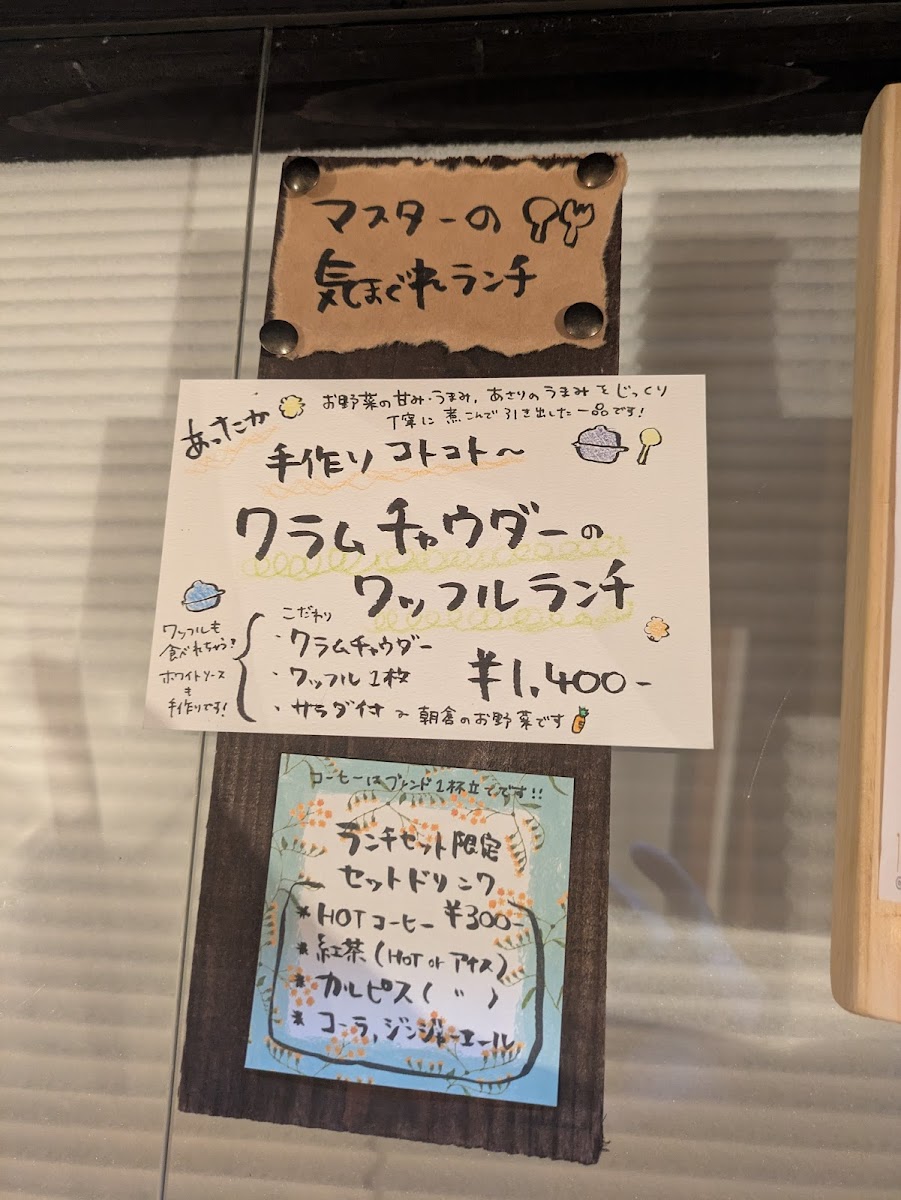 マスターの
気まぐれランチ
あったか
お野菜の甘み・うまみ、あさりのうまみをじっくり
丁寧に煮こんで引き出した一品です!
手作りコトコト〜
クラムチャウダーの
ワッフルランチ
ワッフルも
食べれちゃう!
ホワイトソース
も
手作りです!
こだわり
・クラムチャウダー
・ワッフル1枚
・サラダ付 〜朝倉のお野菜です
¥1,400-
コーヒーはブレンド1杯立てです!!
ランチセット限定
セットドリンク
* HOTコーヒー ¥300-
* 紅茶(HOT or アイス)
* カルピス( 〃 )
* コーラ,ジンジャーエール